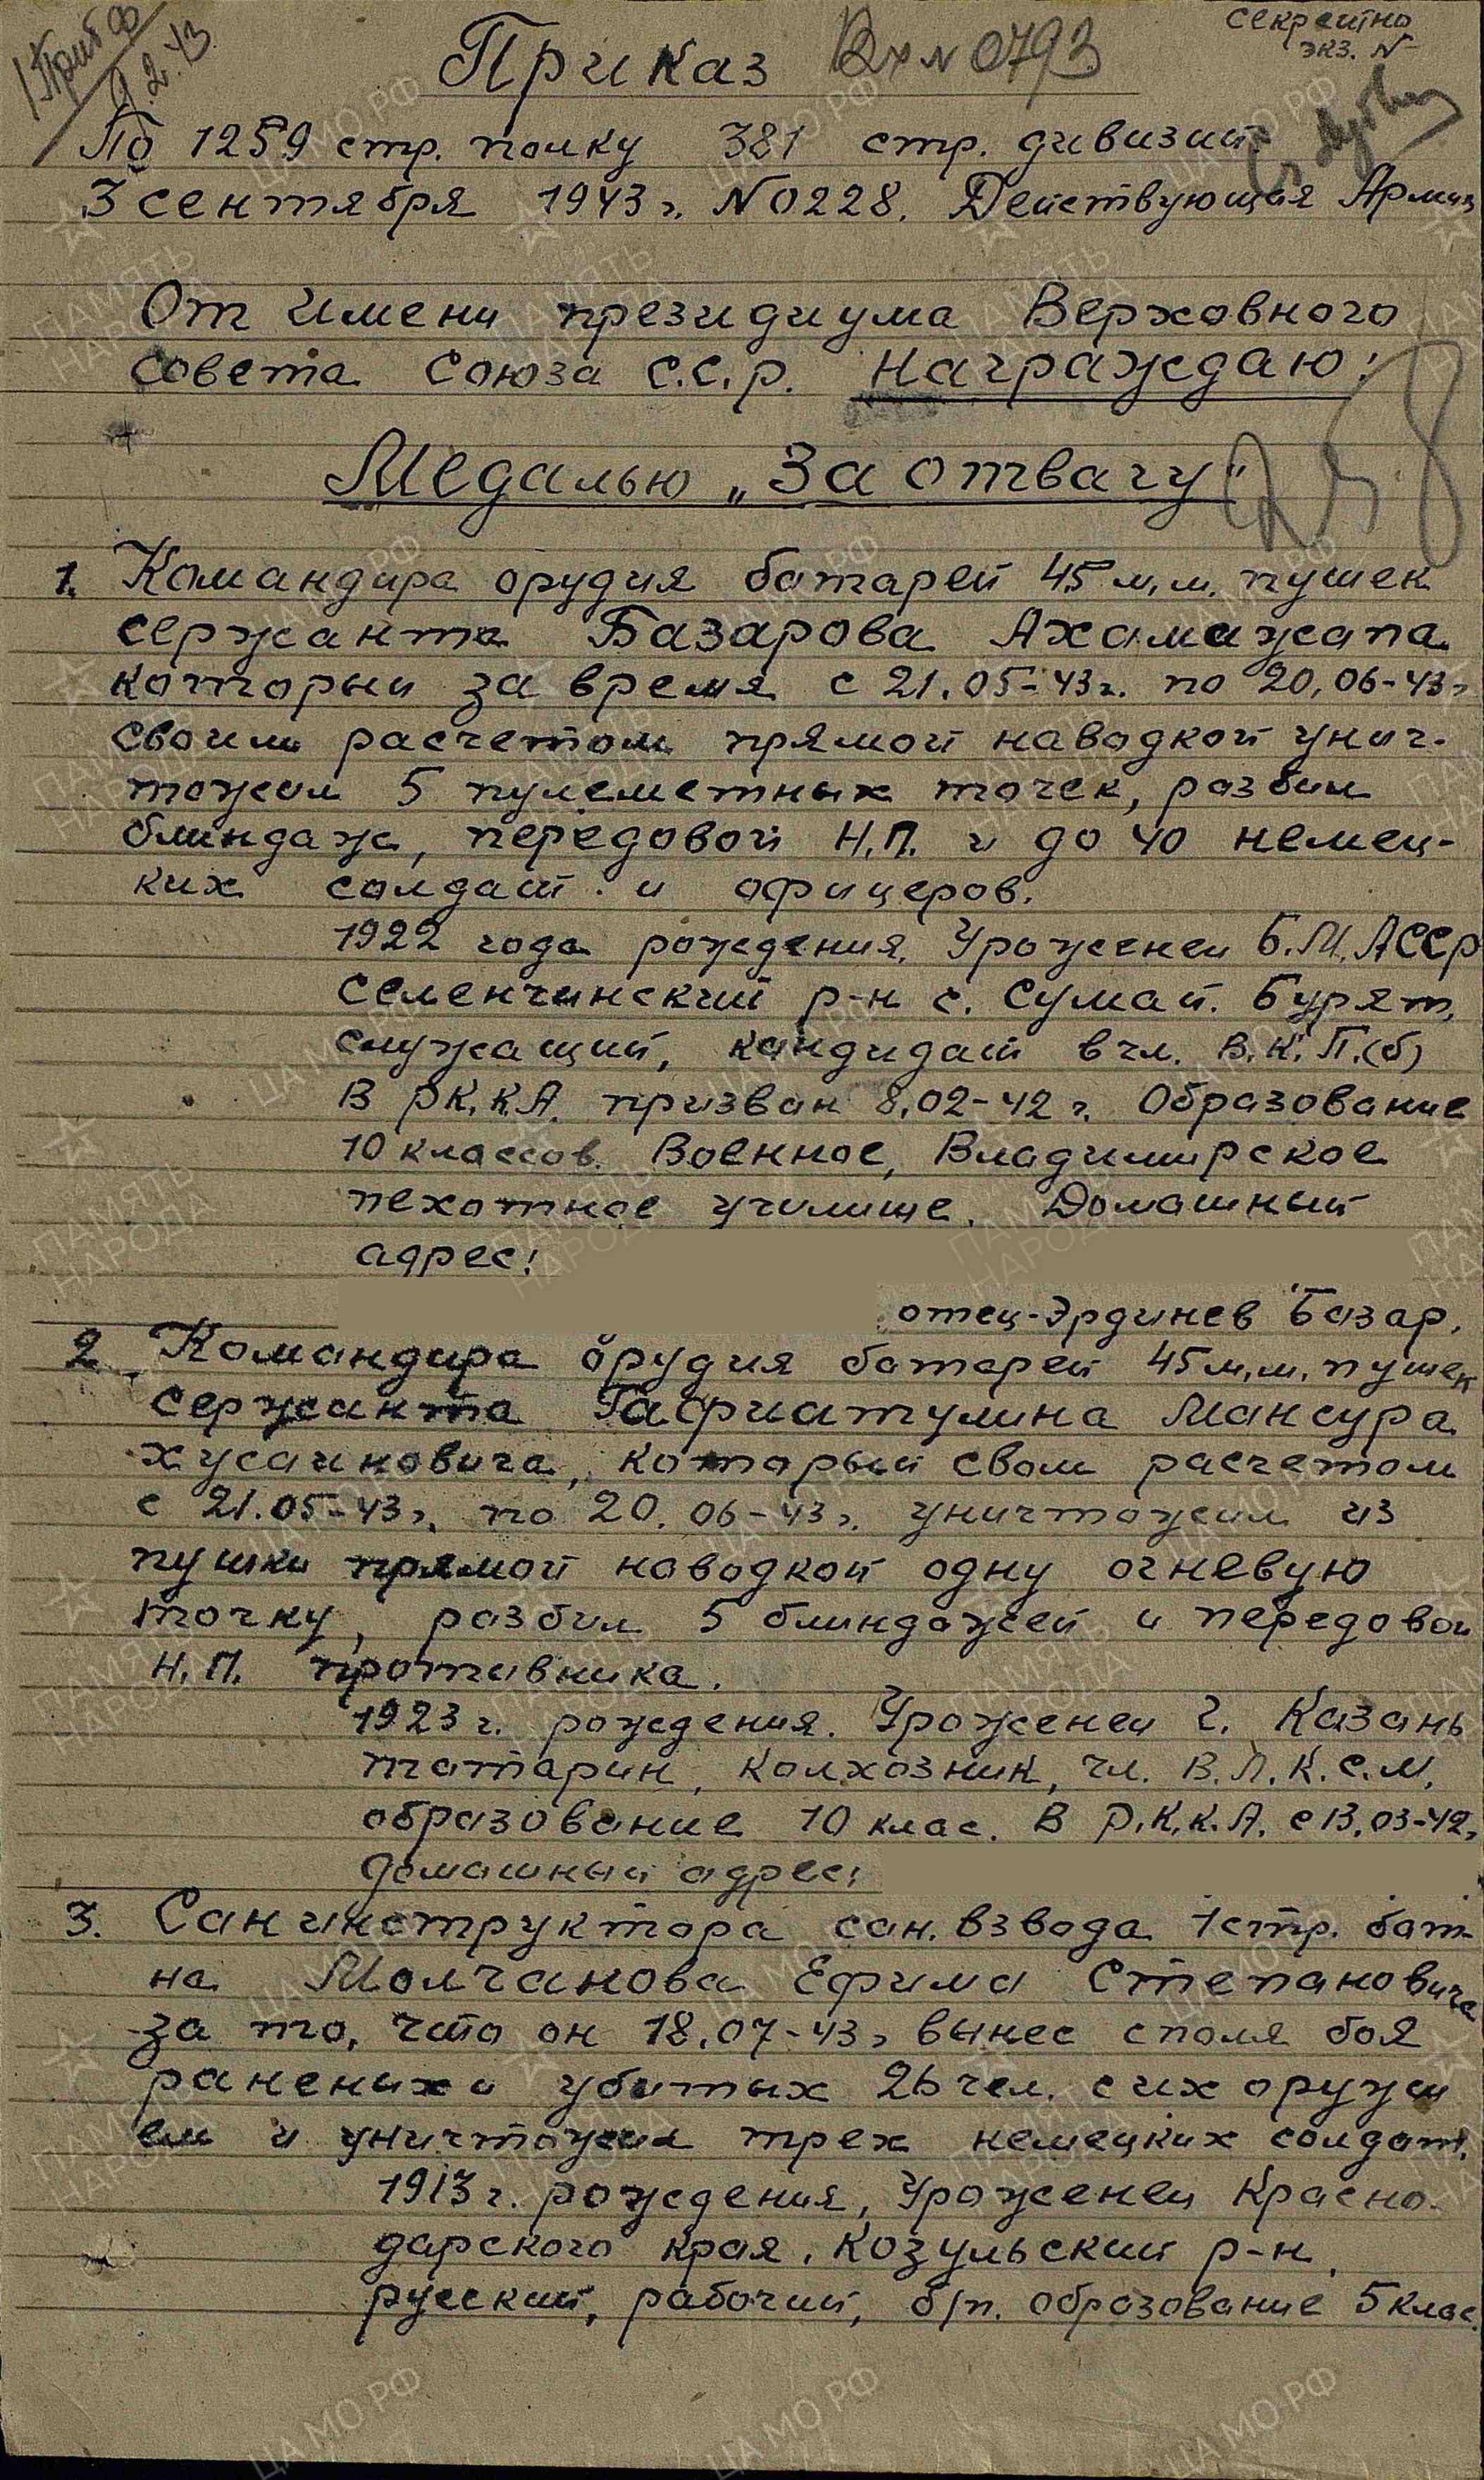 секретно
экз. №
Приказ Вх № 0793
По 1259 стр. полку 381 стр. дивизии
3 сентября 1943 г. N 0228. Действующая Армия
От имени президиума Верховного
совета Союза С.С.Р. Награждаю:
Медалью „За отвагу"
258
1. Командира орудия батарей 45 м.м. пушек
сержанта Базарова Ахамажапа
который за время с 21.05-43г. по 20.06-43г
своим расчетом прямой наводкой унич-
тожил 5 пулеметных точек, разбил
блиндаж, передовой Н.П. и до 40 немец-
ких солдат и офицеров.
1922 года рождения, Уроженец Б.М.АССР
Селенгинский р-н с. Сумай. Бурят,
служащий, кандидат в чл. В.К.П.(б)
В РК.К.А. призван 8.02-42 г. Образование
10 классов. Военное, Владимирское
пехотное училище. Домашный
адрес:
отец-Эрдинев Базар,
2. Командира орудия батарей 45 м.м. пушек
сержанта Гафиатулина Мансура
Хусаиновича, который своим расчетом
с 21.05-43г. по 20.06-43г. уничтожил из
пушки прямой наводкой одну огневую
точку, разбил 5 блиндажей и передовой
Н.П. противника.
1923 г. рождения. Уроженец г. Казань
татарин, колхозник, чл. В.Л.К.С.М,
образование 10 клас. В Р.К.К.А. с 13.03-42г
домашный адрес:
3. Санинструктора сан. взвода 1 стр. бат-
на Молчанова Ефима Степановича
за то, что он 18.07-43г вынес с поля боя
раненых и убитых 26 чел. с их оружи
ем и уничтожил трех немецких солдат.
1913 г. рождения, Уроженец Красно-
дарского края, Козульский р-н,
русский, рабочий, б/п. образование 5 клас.
ЦА МО РФ
ПАМЯТЬ
НАРОДА